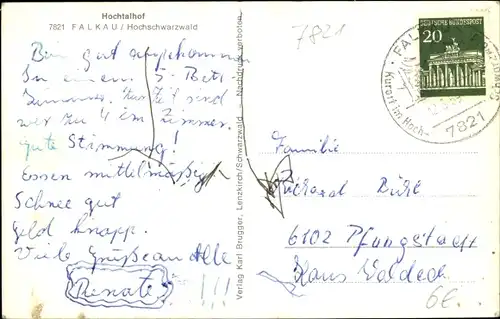 Hochtalhof
7821 FALKAU / Hochschwarzwald
Bin gut angekommen
In einem 5-Bett-
Zimmer. Zur Zeit sind
wir zu 4 im Zimmer.
gute Stimmung!
Essen mittelmäßig
Schnee gut
Geld knapp.
Viele Grüße an Alle
Renate !!!
Verlag Karl Brugger, Lenzkirch/Schwarzwald — Nachdruck verboten.
7821
DEUTSCHE BUNDESPOST
20
FAL
Kurort im Hoch-
7821
Familie
Richard
6102 Pfungstadt
Haus Waldeck
6E.